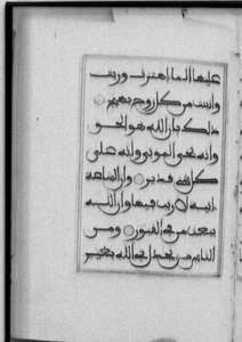 عليها الما اهتزت وربت
وانبتت من كل زوج بهيج
ذلك بان الله هو الحق
وانه يحي الموتى وانه على
كل شي قدير وان الساعه
اتيه لا ريب فيها وان الله
يبعث من في القبور ومن
الناس من يجدل في الله بغير